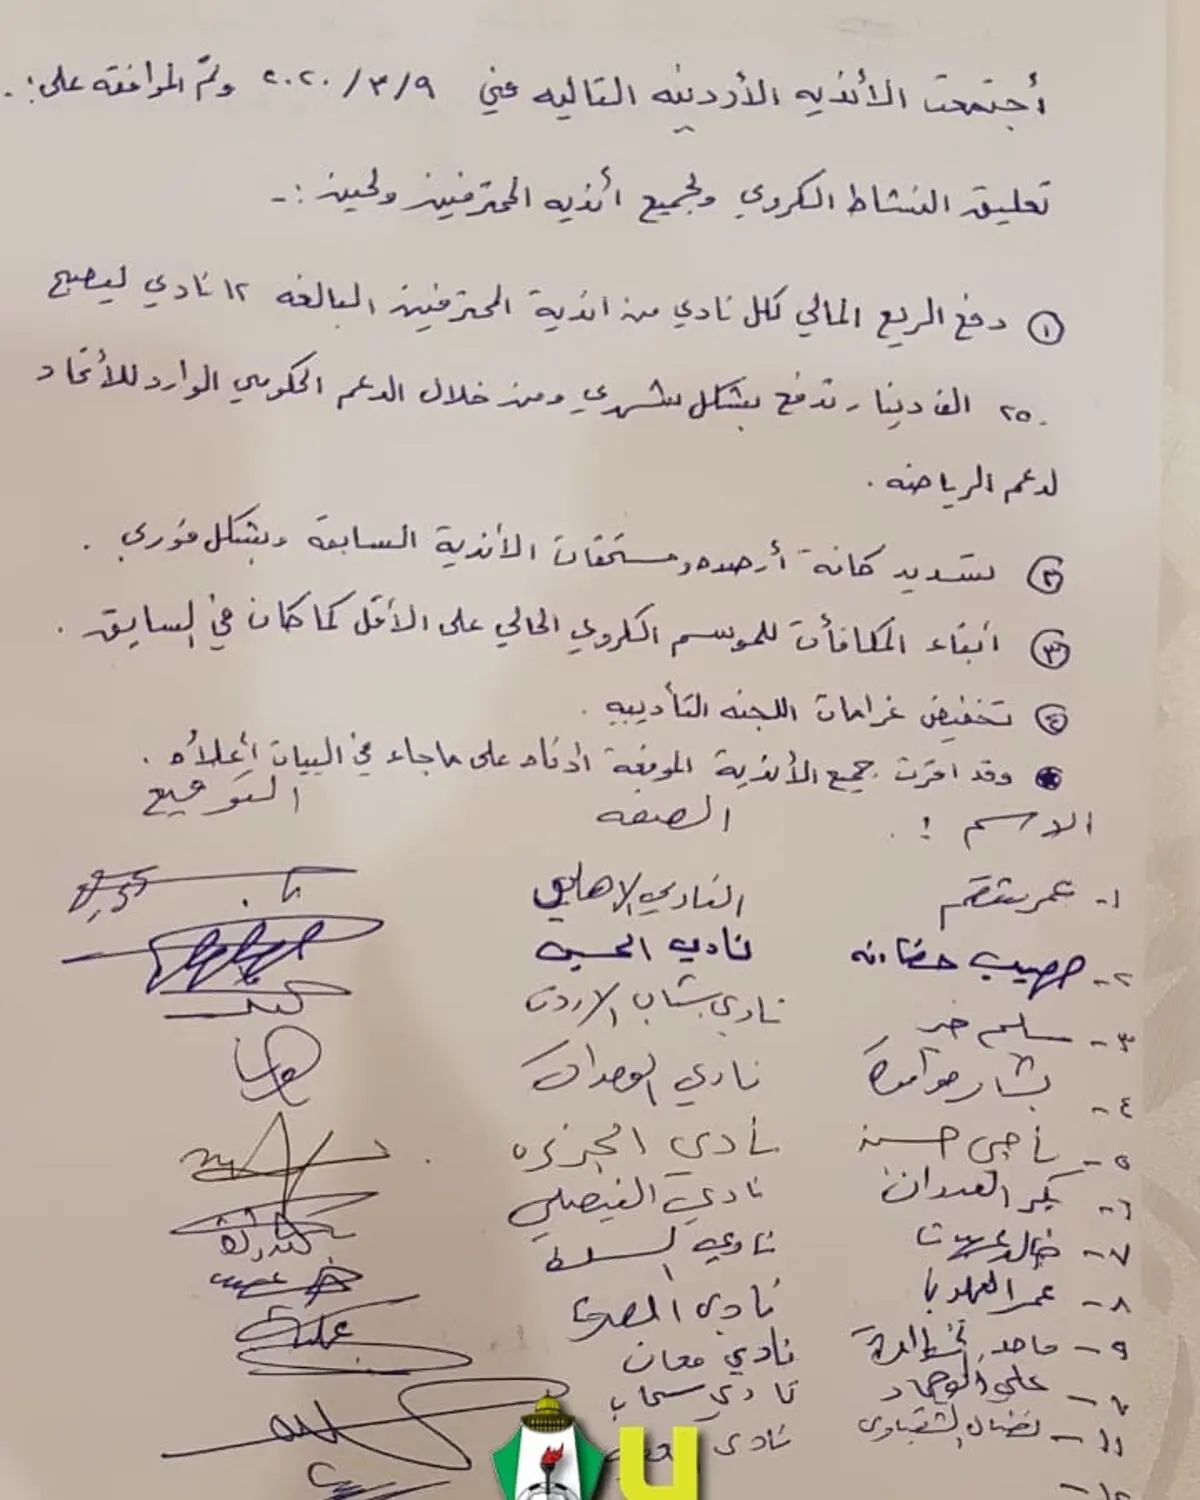 أجتمعت الأنديه الأردنيه التاليه في ٢٠٢٠/٣/٩ وتم الموافقه على :-
تعليق النشاط الكروي ولجميع أنديه المحترفين ولحين :-
١ دفع الريع المالي لكل نادي من اندية المحترفين البالغه ١٢ نادي ليصبح
٢٥٠ الف دينار تدفع بشكل شهري ومن خلال الدعم الحكومي الوارد للأتحاد
لدعم الرياضه .
٢ تسديد كافة أرصده ومستحقات الأندية السابقة وبشكل فوري .
٣ أبقاء المكافأت للموسم الكروي الحالي على الأقل كما كان في السابق .
٤ تخفيض غرامات اللجنه التأديبيه .
وقد اقرت جميع الأندية الموقعة أدناه على ماجاء في البيان أعلاه .
الاسم : الصفه التوقيع
١- عمر النادي الاهلي
٢- صهيب نادي الحسين
٣- سليم خير نادي شباب الاردن
٤- بشار حوامدة نادي الوحدات
٥- ناجي حسن نادي الجزيره
٦- بكر العدوان نادي الفيصلي
٧- خالد عربيات نادي السلط
٨- عمر نادي الصريح
٩- ماجد نادي معان
علي نادي سحاب
١١- نضال نادي
١٢-